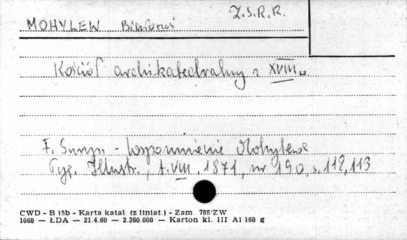 Z.S.R.R.
MOHYLEW Białoruś
Kościół archikatedralny z XVIII w.
F. Sunya - Wspomnienie Mohylewa
Tyg. Illustr., t. VIII, 1871, nr 190, s. 112, 113
CWD - B 15b - Karta katal (z liniat.) - Zam 788/ZW
1060 — ŁDA — 21.4.60 — 2.360.000 — Karton kl. III A1 160 g